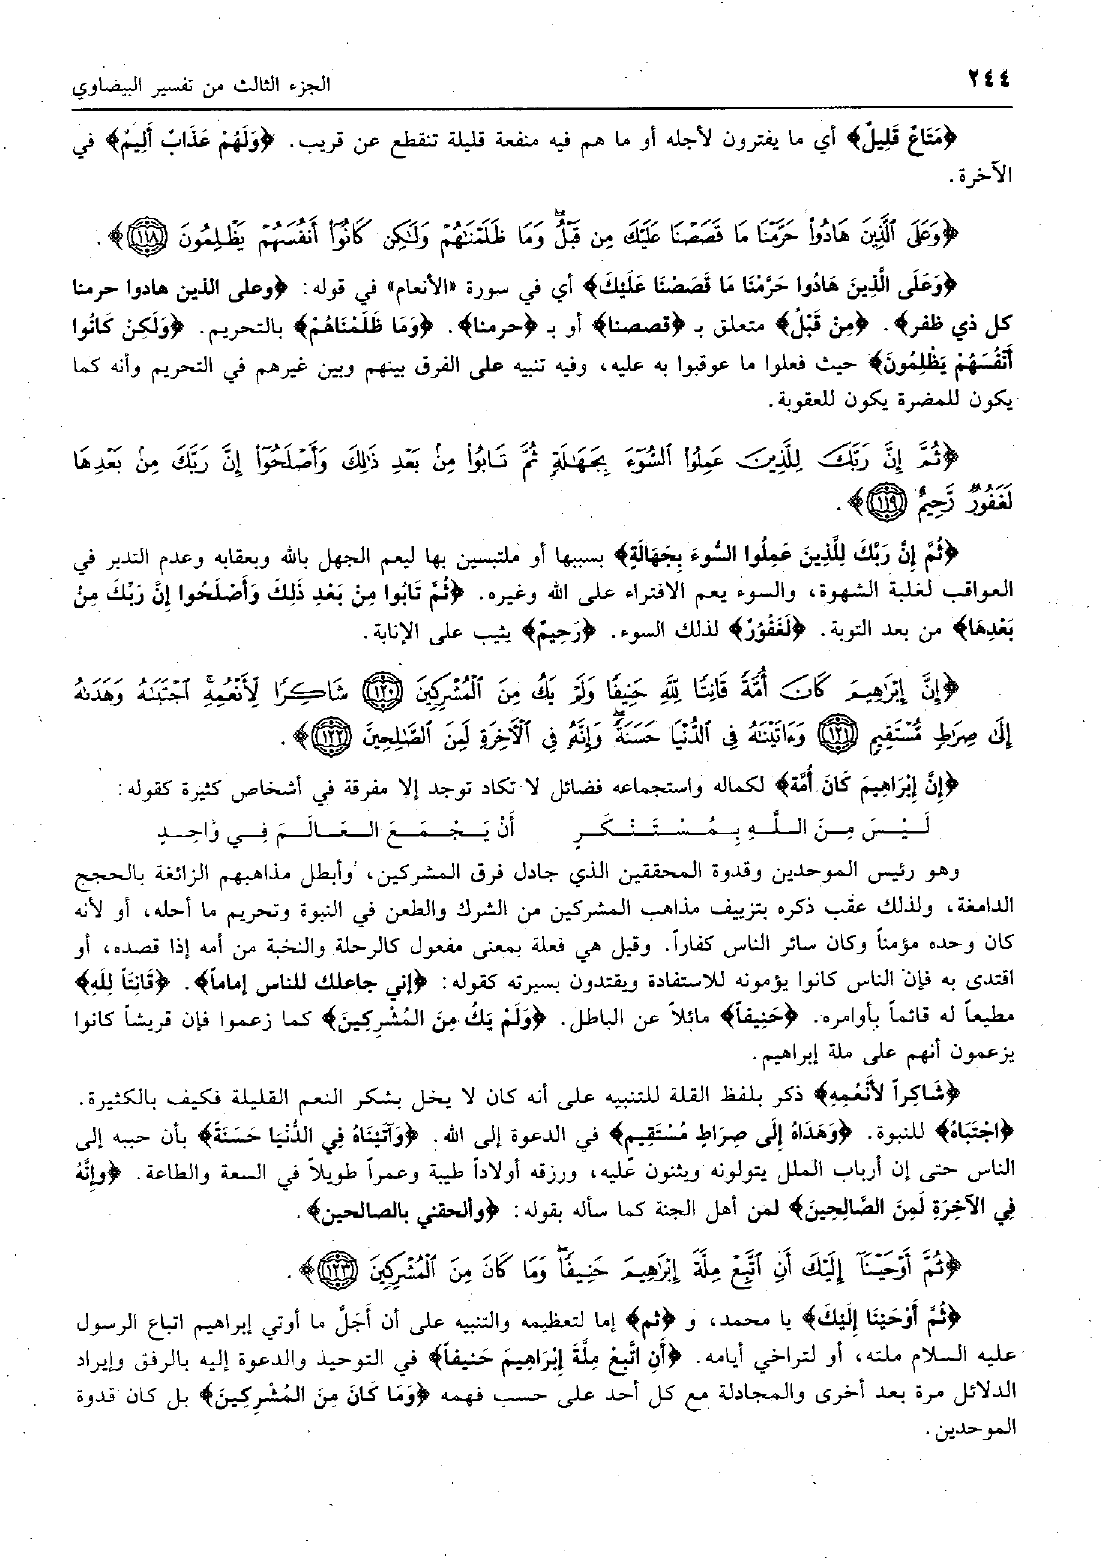 ٢٤٤
الجزء الثالث من تفسير البيضاوي
﴿مَتَاعٌ قَلِيلٌ﴾ أي ما يفترون لأجله أو ما هم فيه منفعة قليلة تنقطع عن قريب. ﴿وَلَهُمْ عَذَابٌ أَلِيمٌ﴾ في
الآخرة.
﴿وَعَلَى ٱلَّذِينَ هَادُوا۟ حَرَّمْنَا مَا قَصَصْنَا عَلَيْكَ مِن قَبْلُ ۖ وَمَا ظَلَمْنَـٰهُمْ وَلَـٰكِن كَانُوٓا۟ أَنفُسَهُمْ يَظْلِمُونَ ﴿١١٨﴾﴾.
﴿وَعَلَى الَّذِينَ هَادُوا حَرَّمْنَا مَا قَصَصْنَا عَلَيْكَ﴾ أي في سورة «الأنعام» في قوله: ﴿وعلى الذين هادوا حرمنا
كل ذي ظفر﴾. ﴿مِنْ قَبْلُ﴾ متعلق بـ ﴿قصصنا﴾ أو بـ ﴿حرمنا﴾. ﴿وَمَا ظَلَمْنَاهُمْ﴾ بالتحريم. ﴿وَلَكِنْ كَانُوا
أَنْفُسَهُمْ يَظْلِمُونَ﴾ حيث فعلوا ما عوقبوا به عليه، وفيه تنبيه على الفرق بينهم وبين غيرهم في التحريم وأنه كما
يكون للمضرة يكون للعقوبة.
﴿ثُمَّ إِنَّ رَبَّكَ لِلَّذِينَ عَمِلُوا۟ ٱلسُّوٓءَ بِجَهَـٰلَةٍ ثُمَّ تَابُوا۟ مِنۢ بَعْدِ ذَٰلِكَ وَأَصْلَحُوٓا۟ إِنَّ رَبَّكَ مِنۢ بَعْدِهَا
لَغَفُورٌ رَّحِيمٌ ﴿١١٩﴾﴾.
﴿ثُمَّ إِنَّ رَبَّكَ لِلَّذِينَ عَمِلُوا السُّوءَ بِجَهَالَةٍ﴾ بسببها أو ملتبسين بها ليعم الجهل بالله وبعقابه وعدم التدبر في
العواقب لغلبة الشهوة، والسوء يعم الافتراء على الله وغيره. ﴿ثُمَّ تَابُوا مِنْ بَعْدِ ذَلِكَ وَأَصْلَحُوا إِنَّ رَبَّكَ مِنْ
بَعْدِهَا﴾ من بعد التوبة. ﴿لَغَفُورٌ﴾ لذلك السوء. ﴿رَحِيمٌ﴾ يثيب على الإنابة.
﴿إِنَّ إِبْرَٰهِيمَ كَانَ أُمَّةً قَانِتًا لِّلَّهِ حَنِيفًا وَلَمْ يَكُ مِنَ ٱلْمُشْرِكِينَ ﴿١٢٠﴾ شَاكِرًا لِّأَنْعُمِهِ ۚ ٱجْتَبَىٰهُ وَهَدَىٰهُ
إِلَىٰ صِرَٰطٍ مُّسْتَقِيمٍ ﴿١٢١﴾ وَءَاتَيْنَـٰهُ فِى ٱلدُّنْيَا حَسَنَةً ۖ وَإِنَّهُۥ فِى ٱلْـَٔاخِرَةِ لَمِنَ ٱلصَّـٰلِحِينَ ﴿١٢٢﴾﴾.
﴿إِنَّ إِبْرَاهِيمَ كَانَ أُمَّةً﴾ لكماله واستجماعه فضائل لا تكاد توجد إلا مفرقة في أشخاص كثيرة كقوله:
لَيْسَ مِنَ اللَّهِ بِمُسْتَنْكَرٍ أَنْ يَجْمَعَ العَالَمَ فِي وَاحِدٍ
وهو رئيس الموحدين وقدوة المحققين الذي جادل فرق المشركين، وأبطل مذاهبهم الزائغة بالحجج
الدامغة، ولذلك عقب ذكره بتزييف مذاهب المشركين من الشرك والطعن في النبوة وتحريم ما أحله، أو لأنه
كان وحده مؤمناً وكان سائر الناس كفاراً. وقيل هي فعلة بمعنى مفعول كالرحلة والنخبة من أمه إذا قصده، أو
اقتدى به فإن الناس كانوا يؤمونه للاستفادة ويقتدون بسيرته كقوله: ﴿إني جاعلك للناس إماماً﴾. ﴿قَانِتاً لِلَّهِ﴾
مطيعاً له قائماً بأوامره. ﴿حَنِيفاً﴾ مائلاً عن الباطل. ﴿وَلَمْ يَكُ مِنَ المُشْرِكِينَ﴾ كما زعموا فإن قريشاً كانوا
يزعمون أنهم على ملة إبراهيم.
﴿شَاكِراً لأَنْعُمِهِ﴾ ذكر بلفظ القلة للتنبيه على أنه كان لا يخل بشكر النعم القليلة فكيف بالكثيرة.
﴿اجْتَبَاهُ﴾ للنبوة. ﴿وَهَدَاهُ إِلَى صِرَاطٍ مُسْتَقِيمٍ﴾ في الدعوة إلى الله. ﴿وَآتَيْنَاهُ فِي الدُّنْيَا حَسَنَةً﴾ بأن حببه إلى
الناس حتى إن أرباب الملل يتولونه ويثنون عليه، ورزقه أولاداً طيبة وعمراً طويلاً في السعة والطاعة. ﴿وإنَّهُ
فِي الآخِرَةِ لَمِنَ الصَّالِحِينَ﴾ لمن أهل الجنة كما سأله بقوله: ﴿وألحقني بالصالحين﴾.
﴿ثُمَّ أَوْحَيْنَآ إِلَيْكَ أَنِ ٱتَّبِعْ مِلَّةَ إِبْرَٰهِيمَ حَنِيفًا ۖ وَمَا كَانَ مِنَ ٱلْمُشْرِكِينَ ﴿١٢٣﴾﴾.
﴿ثُمَّ أَوْحَيْنَا إِلَيْكَ﴾ يا محمد، و ﴿ثم﴾ إما لتعظيمه والتنبيه على أن أَجَلَّ ما أوتي إبراهيم اتباع الرسول
عليه السلام ملته، أو لتراخي أيامه. ﴿أَنِ اتَّبِعْ مِلَّةَ إِبْرَاهِيمَ حَنِيفاً﴾ في التوحيد والدعوة إليه بالرفق وإيراد
الدلائل مرة بعد أخرى والمجادلة مع كل أحد على حسب فهمه ﴿وَمَا كَانَ مِنَ المُشْرِكِينَ﴾ بل كان قدوة
الموحدين.